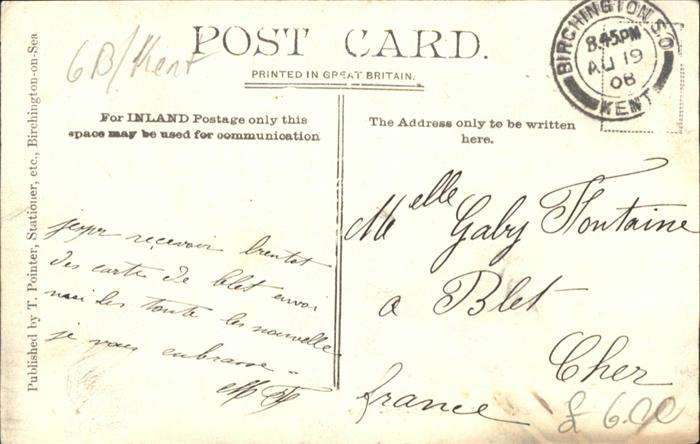 POST CARD.
PRINTED IN GREAT BRITAIN.
6B/Kent
BIRCHINGTON S.O
8.45 PM
AU 19
08
KENT
Published by T. Pointer, Stationer, etc., Birchington-on-Sea
For INLAND Postage only this
space may be used for communication
The Address only to be written
here.
recevoir bientot
des cartes de Blet envoi
les toute les nouvelle
je vous embrasse.
Melle Gaby Fontaine
a Blet
Cher
france
£ 6.00